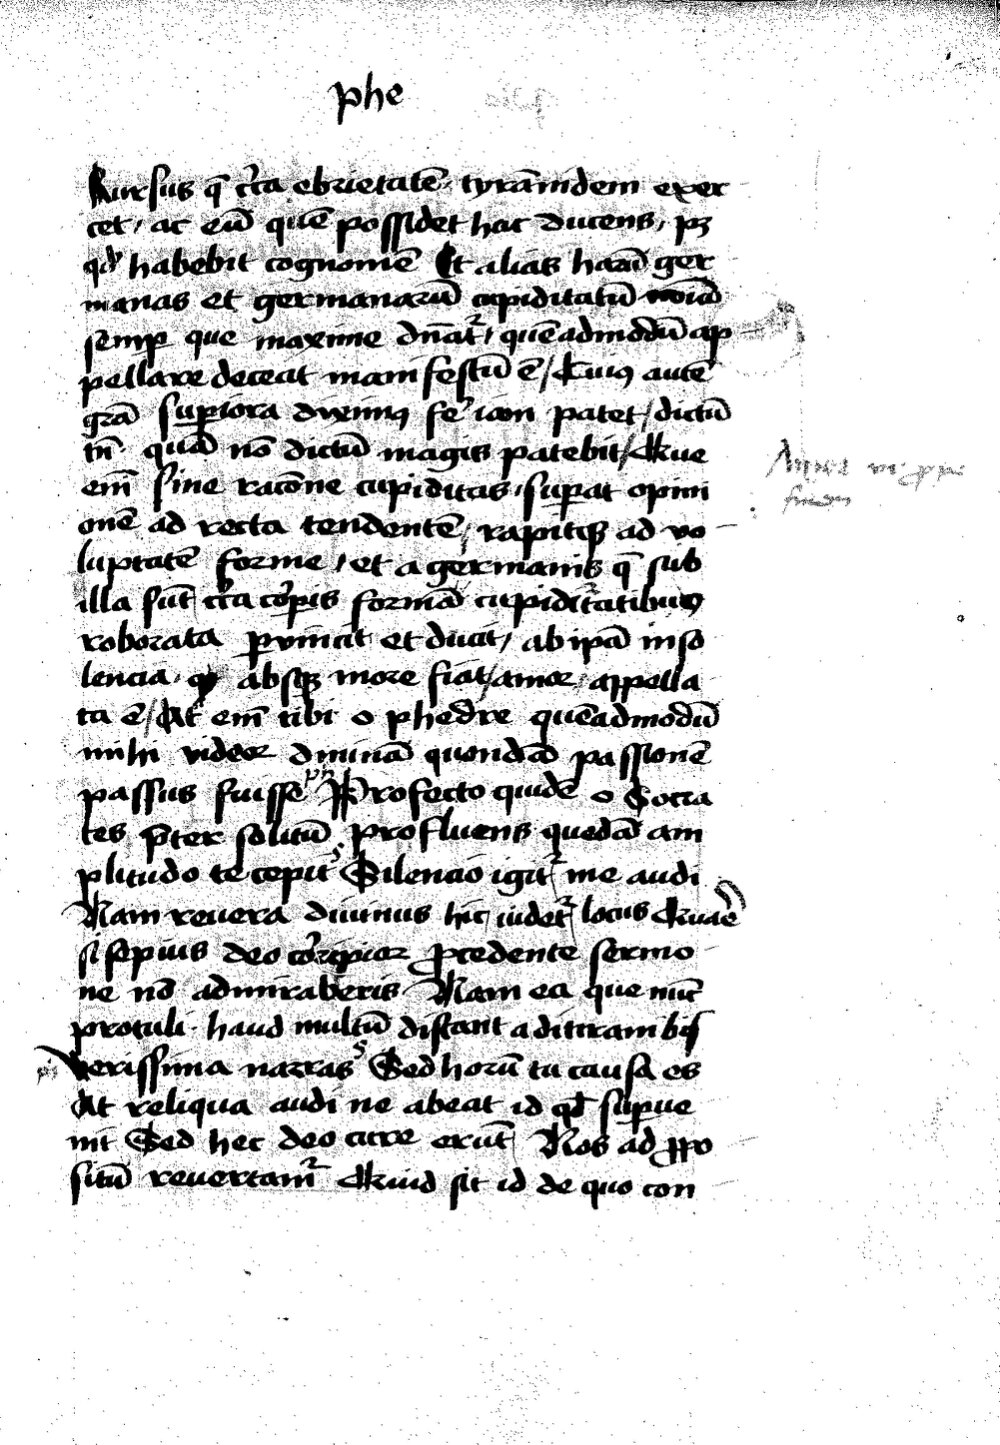 phe
Rursus q̄ cͬca ebrietatē, tyrāmdem exer
cet, ac eū quē possidet hac ducens, pʒ
qd̛ habebit cognomē Et alias harū ger
manas et germanarū cupiditatū noīa
semꝑ que maxime dn̄atᷣ, quēadmodū ap
pellare deceat manifestū ē / Cuiꝰ autē
grā suꝑiora diximꝰ fe᷑ iam patet / dictū
tn̄ · quā nō dictū magis patebit / Que
em̄ sine racōne cupiditas, suꝑat opini
onē ad recta tendentē, rapitqꝫ ad vo
luptatē forme, et a germanis q̄ sub
illa sūt cͬca coꝛꝑis formā cupiditatibus
roborata ꝑvincit et ducit, ab ipā inso
lencia, absqꝫ more fiat / amor, appella
ta ē / At em̄ tibi o phedre quēadmodū
mihi videor diuinā quondā passionē
passus fuisse ph Profecto quidē o Socra
tes p̄ter solitū profluens quedā am
plitudo te cepit S Silencio igitᷣ me audi
Nam reuera diuinus hic uidetᷣ locus Quaē
si sepius deo coꝛripior ꝓcedente sermo
ne nō admiraberis. Nam ea que nūc
protuli haud multū distant a ditirambis
ph Verissima narras S Sed horū tu causa es
At reliqua audi ne abeat id qd̛ suꝑue
nit Sed hec deo cure erūt Nos ad ꝓpo
sitū reuertamᷣ Quid sit id de quo con